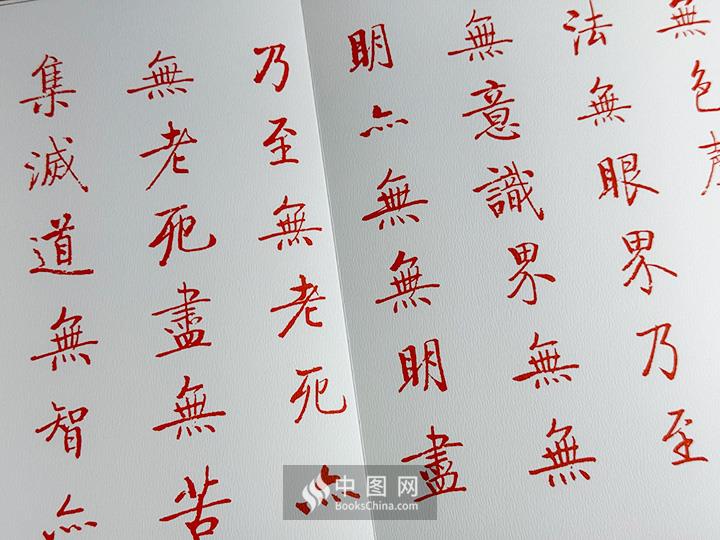 無色
法無眼界乃至
無意識界無無
明亦無無明盡
乃至無老死亦
無老死盡無苦
集滅道無智亦
中图网
BooksChina.com